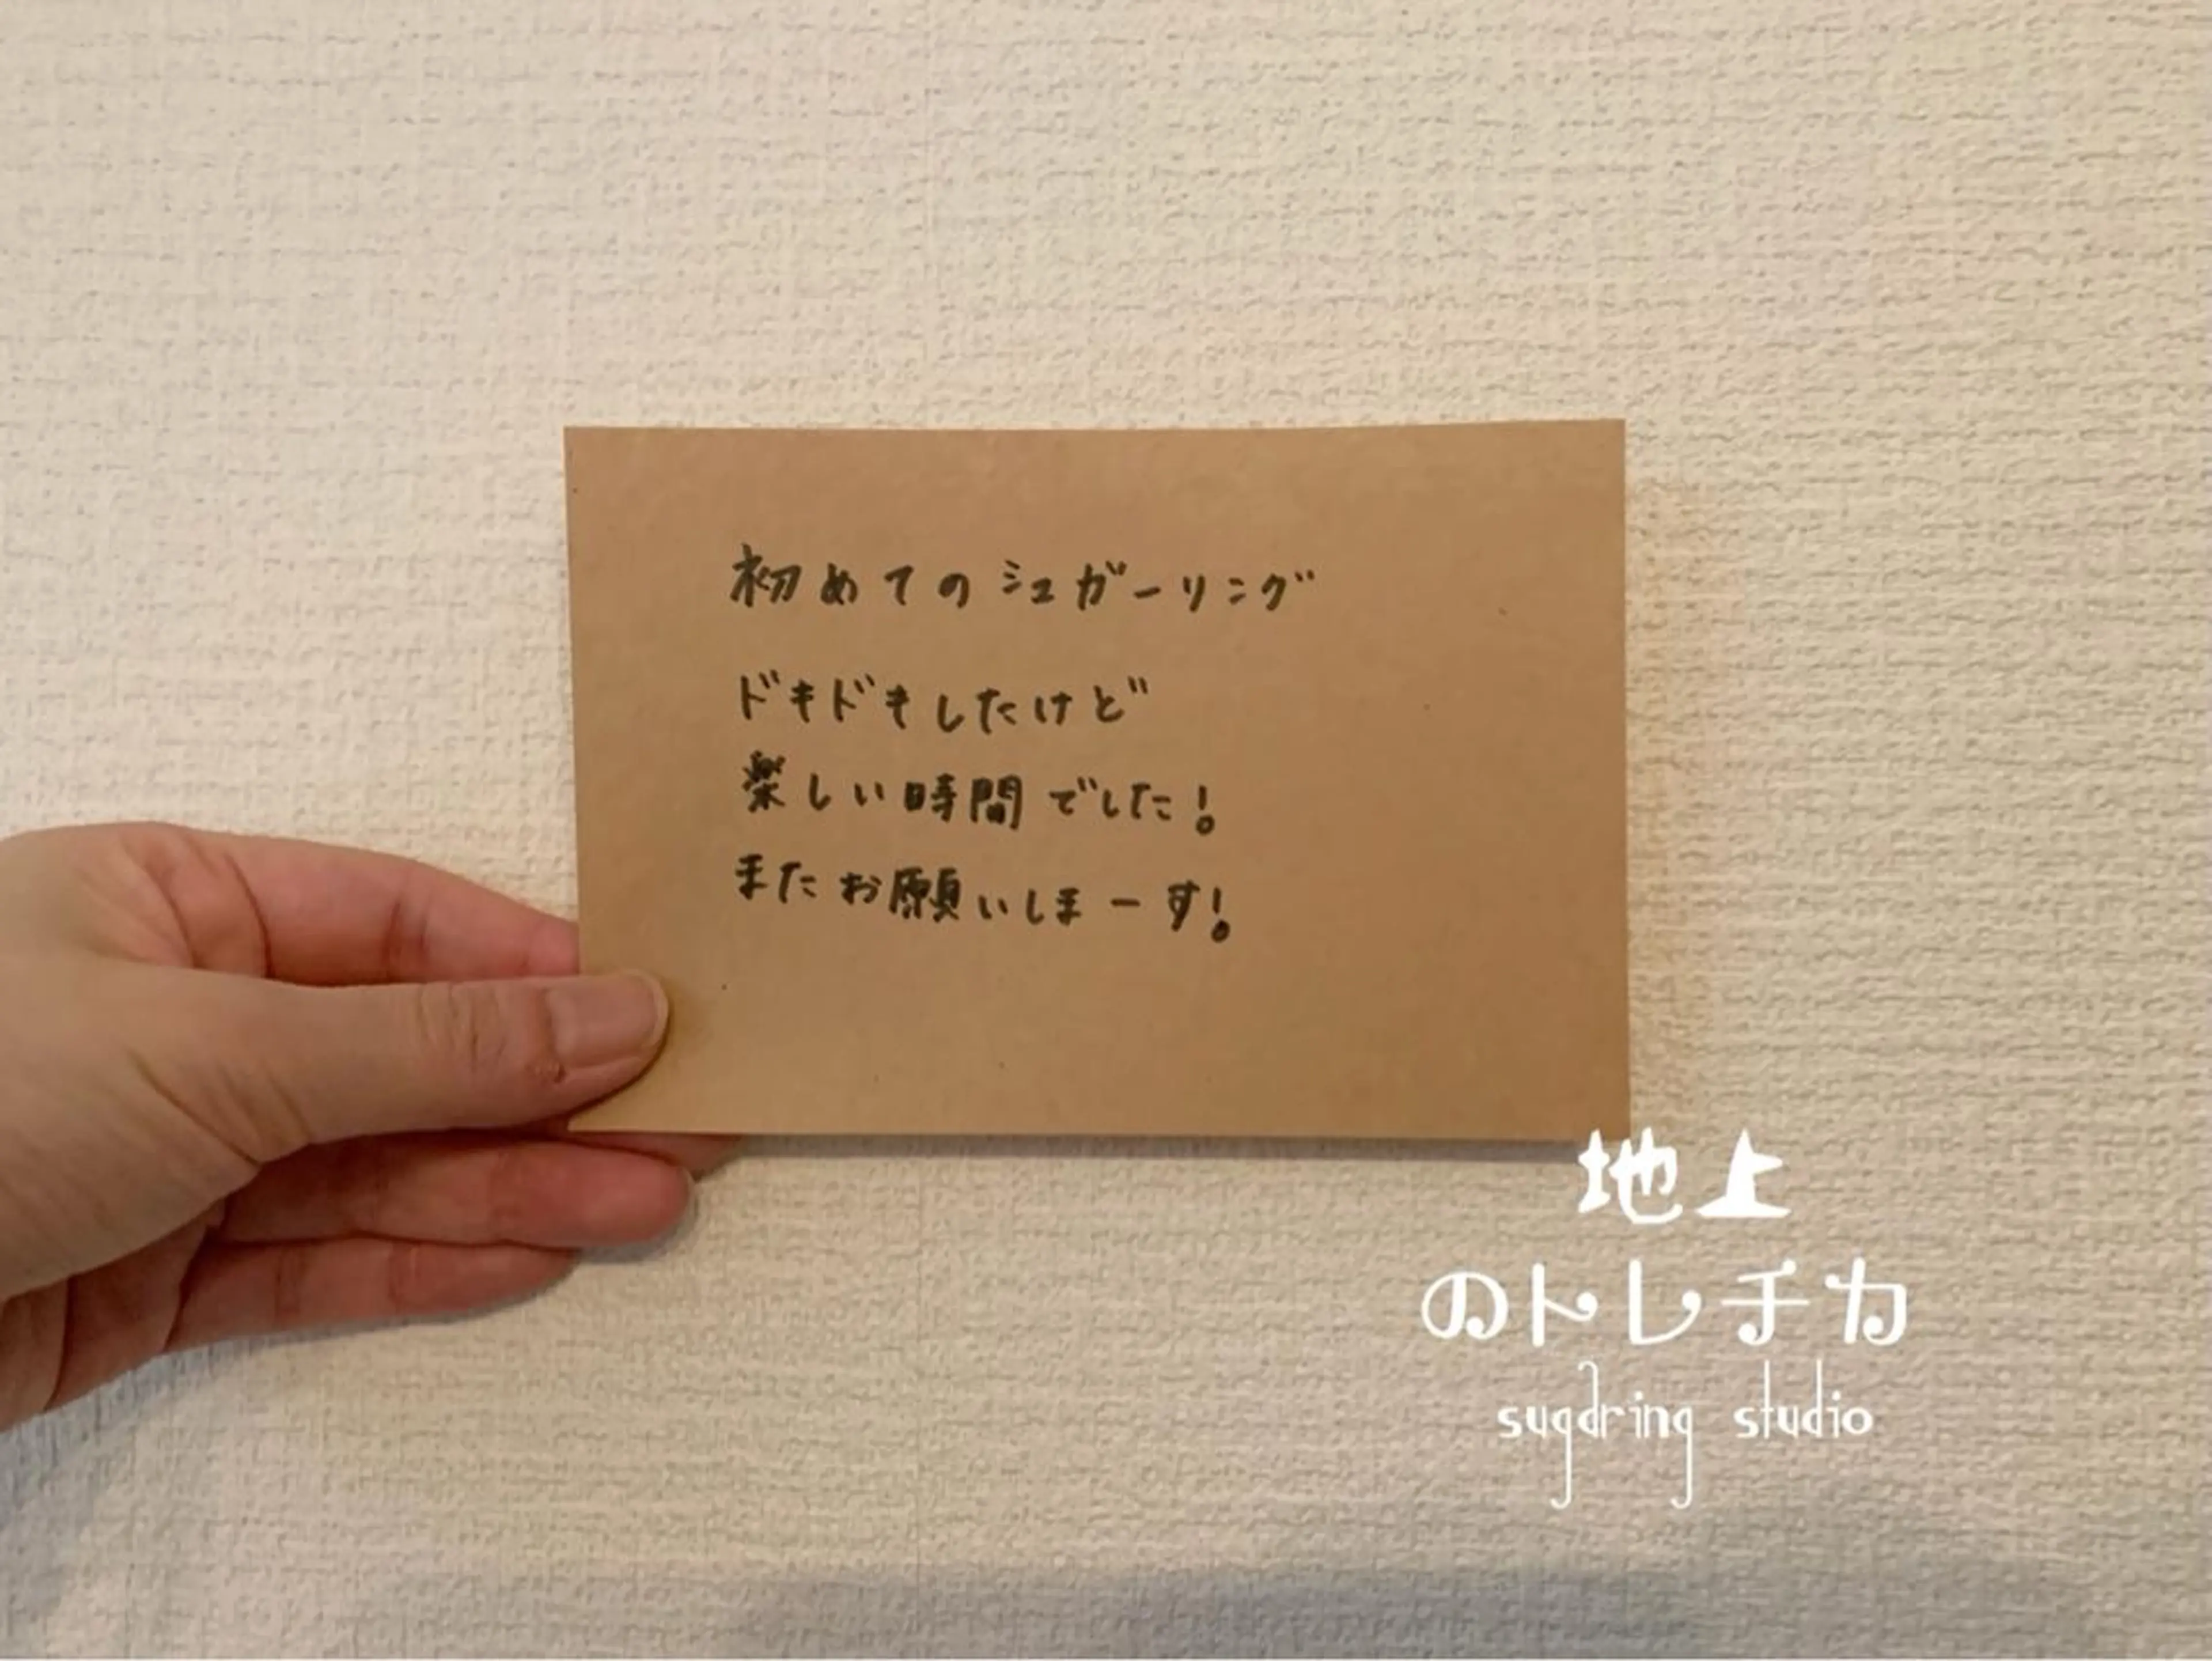 初めてのシュガーリング
ドキドキしたけど
楽しい時間でした!
またお願いしまーす!
地上
のトレチカ
sugaring studio